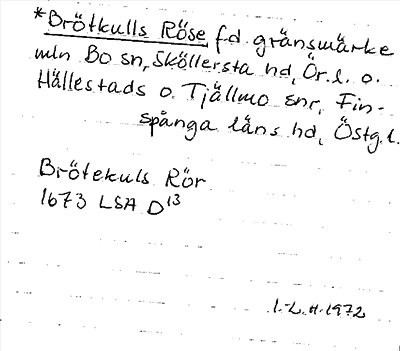 *Brötkulls Röse f.d. gränsmärke
mln Bo sn, Sköllersta hd, Ör.l. o.
Hällestads o. Tjällmo snr, Fin-
spånga läns hd, Östg.l.
Brötekuls Rör
1673 LSA D13
I.-L.H. 1972